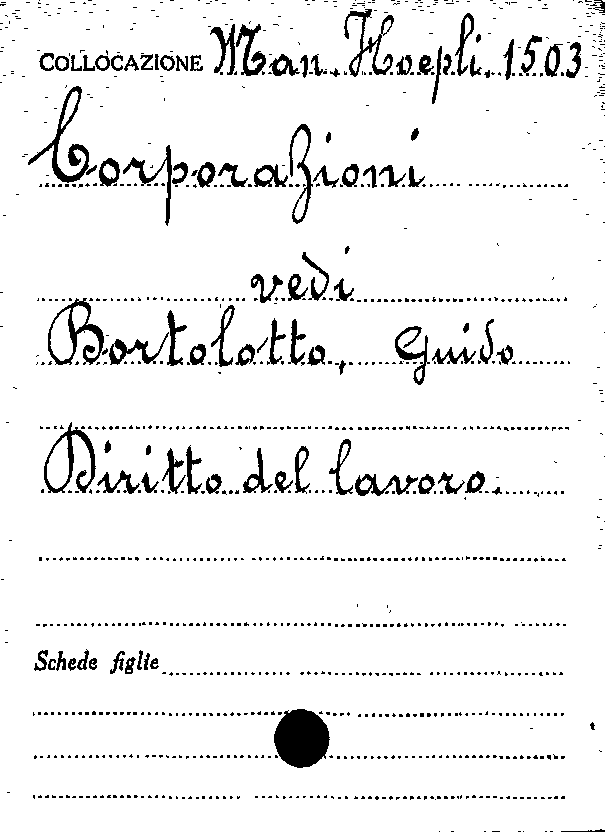 COLLOCAZIONE Man. Hoepli. 1503
Corporazioni
vedi
Bortolotto, Guido
Diritto del lavoro.
Schede figlie